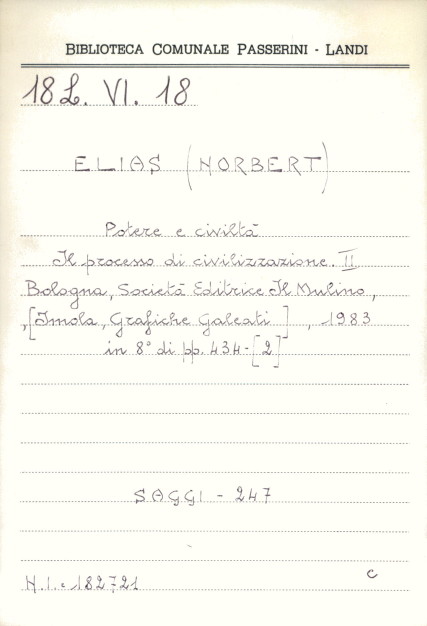 BIBLIOTECA COMUNALE PASSERINI - LANDI
18 L. VI. 18
ELIAS (NORBERT)
Potere e civiltà
Il processo di civilizzazione. II
Bologna, Società Editrice Il Mulino,
,[Imola, Grafiche Galeati], 1983
in 8° di pp. 434-[2]
SAGGI - 247
N.I. 182721
c